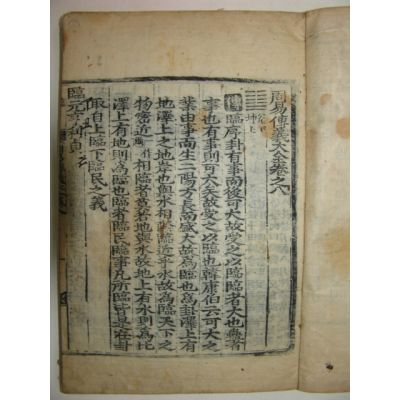 周易傳義大全卷之八
兌下
坤上
傳臨序卦有事而後可大故受之以臨臨者大也蠱者
事也有事則可大矣故受之以臨也韓康伯云可大之
業由事而生二陽方長而盛大故為臨也為卦澤上有
地澤上之地岸也與水相際臨近乎水故為臨天下之
物密近相臨者莫若地與水故地上有水則為比
澤上有地則為臨也臨者臨民臨事凡所臨皆是在卦
取自上臨下臨民之義
臨元亨利貞